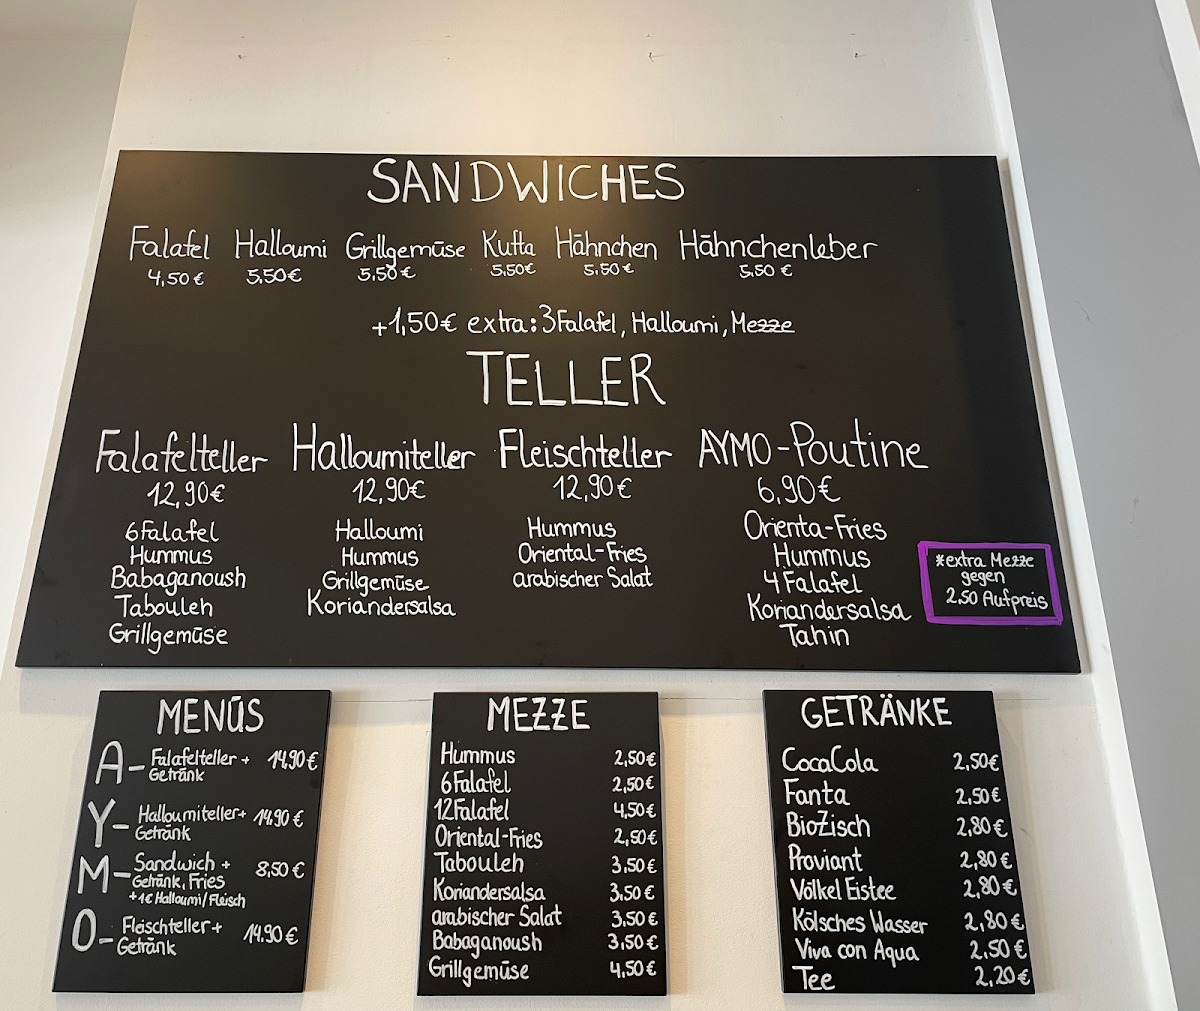 SANDWICHES
Falafel Halloumi Grillgemüse Kufta Hähnchen Hähnchenleber
4,50€ 5,50€ 5,50€ 5,50€ 5,50€ 5,50€
+1,50€ extra: 3 Falafel, Halloumi, Mezze
TELLER
Falafelteller Halloumiteller Fleischteller AYMO-Poutine
12,90€ 12,90€ 12,90€ 6,90€
6 Falafel
Hummus
Babaganoush
Tabouleh
Grillgemüse
Halloumi
Hummus
Grillgemüse
Koriandersalsa
Hummus
Oriental-Fries
arabischer Salat
Orienta-Fries
Hummus
4 Falafel
Koriandersalsa
Tahin
*extra Mezze
gegen
2,50 Aufpreis
MENÜS
A- Falafelteller + 14,90€
Getränk
Y- Halloumiteller+ 14.90€
Getränk
M- Sandwich + 8,50€
Getränk, Fries
+1€ Halloumi/Fleisch
O- Fleischteller+ 14.90€
Getränk
MEZZE
Hummus 2,50€
6 Falafel 2,50€
12 Falafel 4,50€
Oriental-Fries 2,50€
Tabouleh 3,50€
Koriandersalsa 3,50€
arabischer Salat 3,50€
Babaganoush 3,50€
Grillgemüse 4,50€
GETRÄNKE
CocaCola 2,50€
Fanta 2,50€
BioZisch 2,80€
Proviant 2,80€
Völkel Eistee 2,80€
Kölsches Wasser 2,80€
Viva con Aqua 2,50€
Tee 2,20€